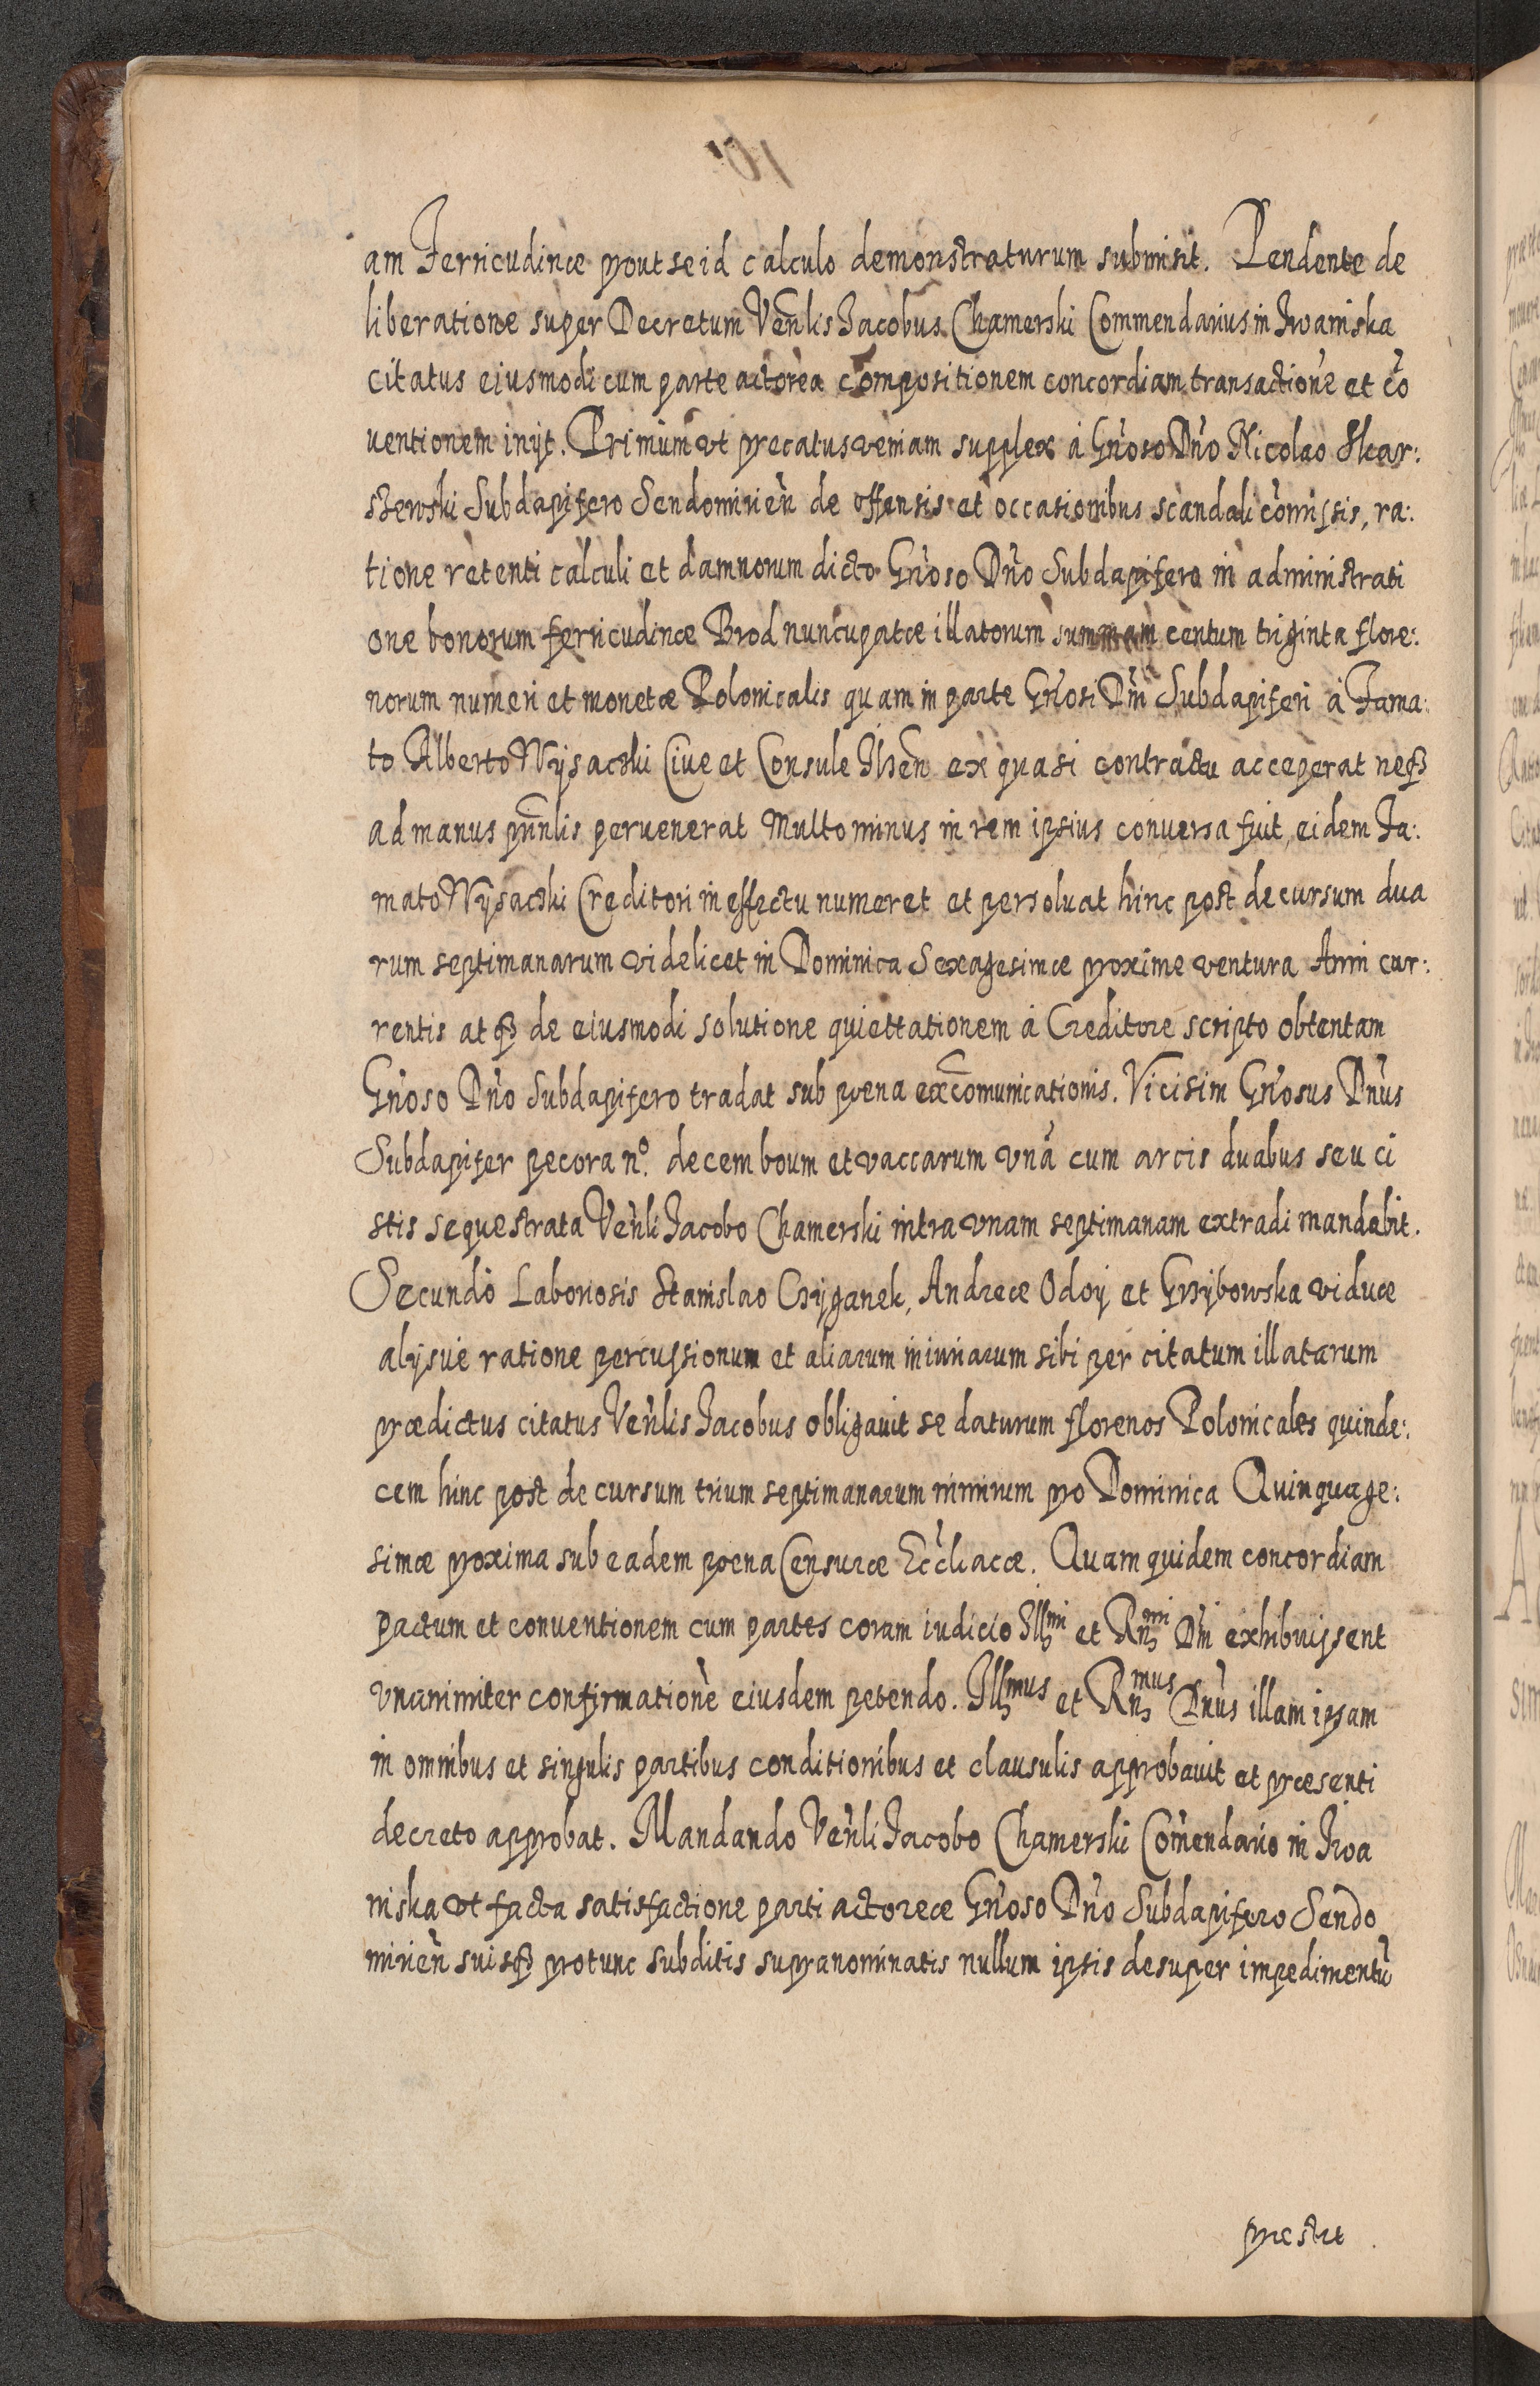 am Ferricudinæ prout se id calculo demonstraturum submisit. Pendente de
liberatione super Decretum Ven̄lis Jacobus Chamerski Commendarius in Iwaniska
citatus eiusmodi cum parte actorea compositionem concordiam transactionē et cō
uentionem inijt. Primum ut precatus veniam supplex à Gn̄oso Dn̄o Nicolao Skar:
szewski Subdapifero Sendomirien̄ de offensis et occasionibus scandali com̄issis, ra:
tione retenti calculi et damnorum dicto Gn̄oso Dn̄o Subdapifero in administrati
one bonorum ferricudinæ Brod nuncupatæ illatorum summam centum triginta flore:
norum numeri et monetæ Polonicalis quam in parte Gn̄osi Dn̄i Subdapiferi à Fama:
to Alberto Wysacski Ciue et Consule Ilsen̄ ex quasi contractu acceperat neq3
ad manus prin̄lis peruenerat Multo minus in rem ipsius conuersa fuit, eidem Fa:
mato Wysacski Creditori in effectu numeret et persoluat hinc post decursum dua
rum septimanarum videlicet in Dominica Sexagesimæ proxime ventura Anni cur:
rentis atq3 de eiusmodi solutione quiettationem à Creditore scripto obtentam
Gn̄oso Dn̄o Subdapifero tradat sub pœna excom̄unicationis. Vicisim Gn̄osus Dn̄us
Subdapifer pecora nº. decem boum et vaccarum vnà cum arcis duabus seu ci
stis sequestrata Ven̄li Jacobo Chamerski intra vnam septimanam extradi mandabit.
Secundò Laboriosis Stanislao Czyganek, Andreæ Odoy et Grzybowska viduæ
alysue ratione percussionum et aliarum iniuriarum sibi per citatum illatarum
prædictus citatus Ven̄lis Jacobus obligauit se daturum florenos Polonicales quinde:
cem hinc post decursum trium septimanarum nimirum pro Dominica Quinquage:
simæ proxima sub eadem pœna Censuræ Ecc̄liacæ. Quam quidem concordiam
pactum et conuentionem cum partes coram iudicio Illmi et Rnmi Dn̄i exhibuissent
vnanimiter confirmationē eiusdem petendo. Illmus et Rnmus Dn̄us illam ipsam
in omnibus et singulis partibus conditionibus et clausulis approbauit et præsenti
decreto approbat. Mandando Ven̄li Jacobo Chamerski Com̄endario in Iwa
niska vt facta satisfactione parti actoreæ Gn̄oso Dn̄o Subdapifero Sendo
mirien̄ suisq3 protunc subditis supranominatis nullum ipsis desuper impedimentū